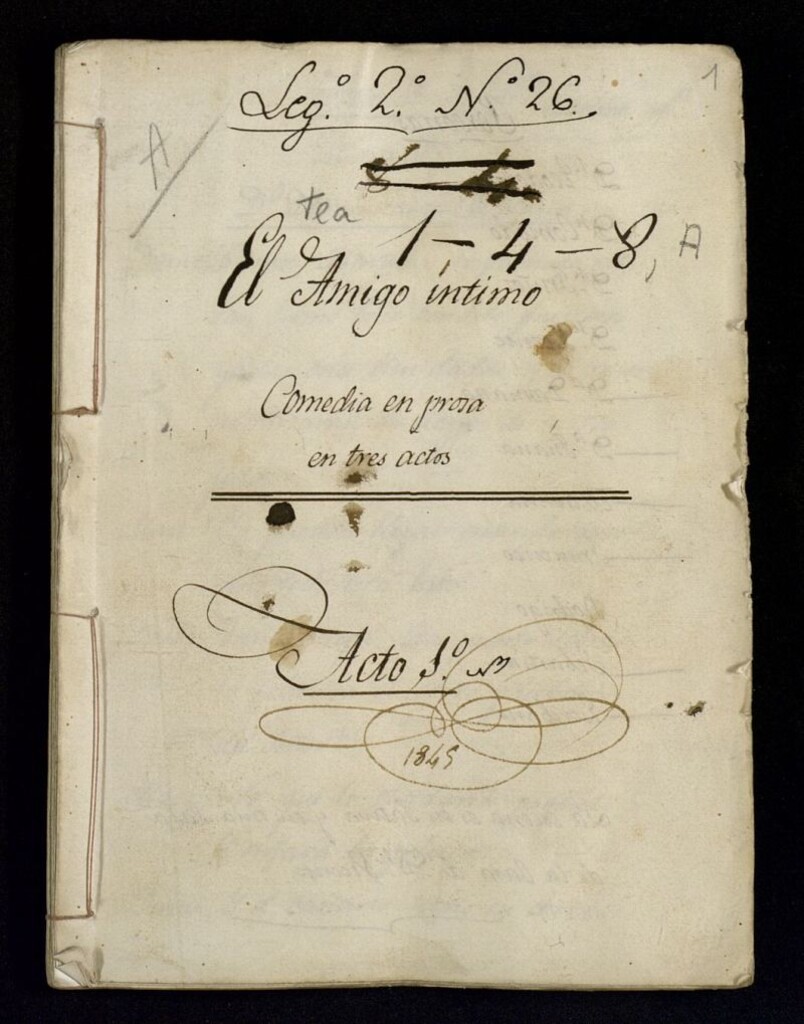 1
Leg.º 2.º N.º 26.
A
tea
1-4-8, A
El Amigo íntimo
Comedia en prosa
en tres actos
Acto 1.º
1845